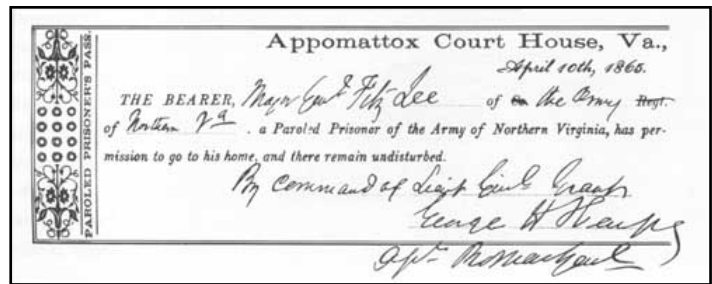 PAROLED PRISONER'S PASS.
Appomattox Court House, Va.,
April 10th, 1865.
THE BEARER, Major Genl Fitz Lee of Co. the Army Regt.
of Northern Va. a Paroled Prisoner of the Army of Northern Virginia, has per-
mission to go to his home, and there remain undisturbed.
By Command of Lieut Genl Grant
George H Sharpe